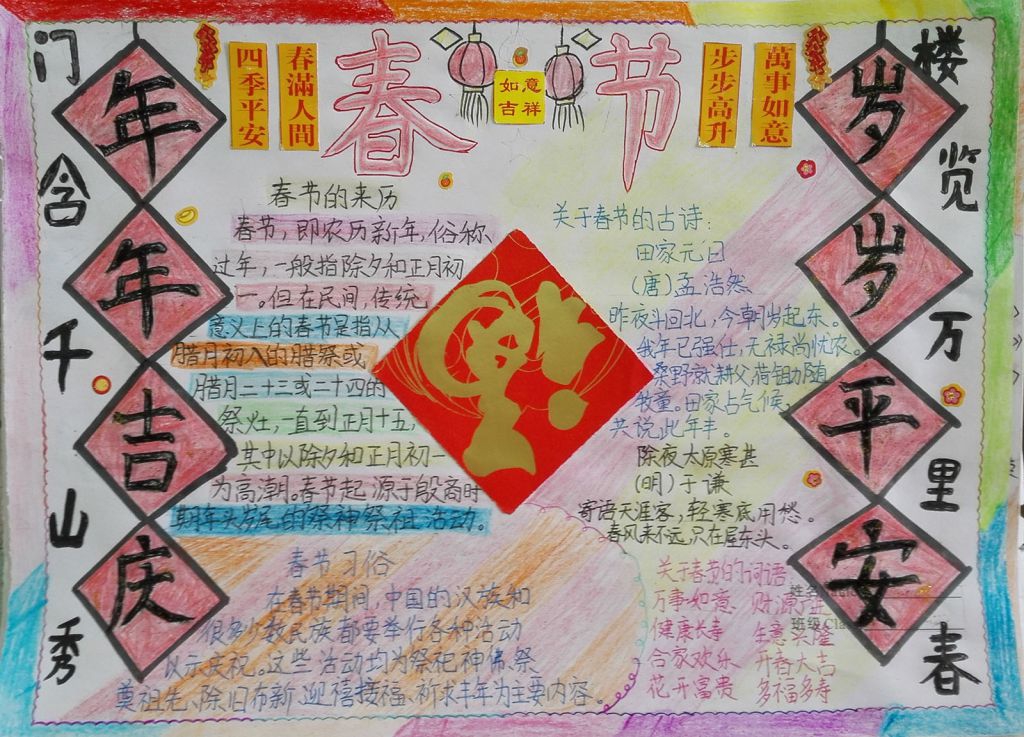 春节
四季平安
春滿人間
如意
吉祥
步步高升
萬事如意
门含千山秀
年年吉庆
岁岁平安
楼览万里春
春节的来历
春节，即农历新年，俗称
过年，一般指除夕和正月初
一。但在民间，传统
意义上的春节是指从
腊月初八的腊祭或
腊月二十三或二十四的
祭灶，一直到正月十五，
其中以除夕和正月初一
为高潮。春节起源于殷商时
期年头岁尾的祭神祭祖活动。
春节习俗
在春节期间，中国的汉族和
很多少数民族都要举行各种活动
以示庆祝。这些活动均为祭祀神佛、祭
奠祖先、除旧布新、迎禧接福、祈求丰年为主要内容。
福
关于春节的古诗：
田家元日
（唐）孟浩然
昨夜斗回北，今朝岁起东。
我年已强仕，无禄尚忧农。
桑野就耕父，荷锄随
牧童。田家占气候，
共说此年丰。
除夜太原寒甚
（明）于谦
寄语天涯客，轻寒底用愁。
春风来不远，只在屋东头。
关于春节的词语
万事如意 财源广进
健康长寿 生意兴隆
合家欢乐 开春大吉
花开富贵 多福多寿
班级Cla